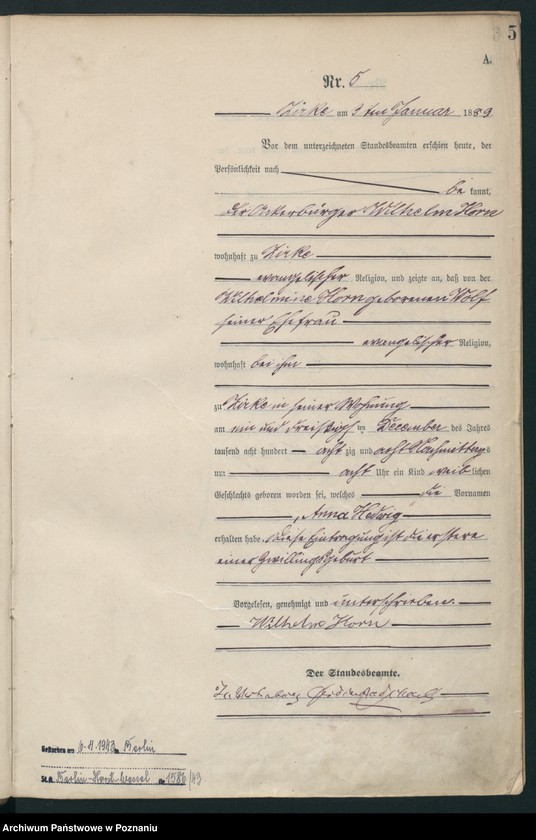 5
A.
Nr. 5
Zirke am 3 ten Januar 1889
Vor dem unterzeichneten Standesbeamten erschien heute, der
Persönlichkeit nach
be kannt,
der Ackerbürger Wilhelm Horn
wohnhaft zu Zirke
evangelischer Religion, und zeigte an, daß von der
Wilhelmine Horn geborenen Wolf
seiner Ehefrau
evangelischer Religion,
wohnhaft bei ihm
zu Zirke in seiner Wohnung
am ein und dreißigsten December des Jahres
tausend acht hundert achtzig und acht Nachmittags
um acht Uhr ein Kind weiblichen
Geschlechts geboren worden sei, welches die Vornamen
Anna Hedwig
erhalten habe. Diese Eintragung ist die erstere
einer Zwillingsgeburt
Vorgelesen, genehmigt und unterschrieben.
Wilhelm Horn
Der Standesbeamte.
In Vertretung
Gestorben am 6.4.1943 in Berlin
St.A. Berlin-Horst Wessel Nr. 1586/43
Archiwum Państwowe w Poznaniu